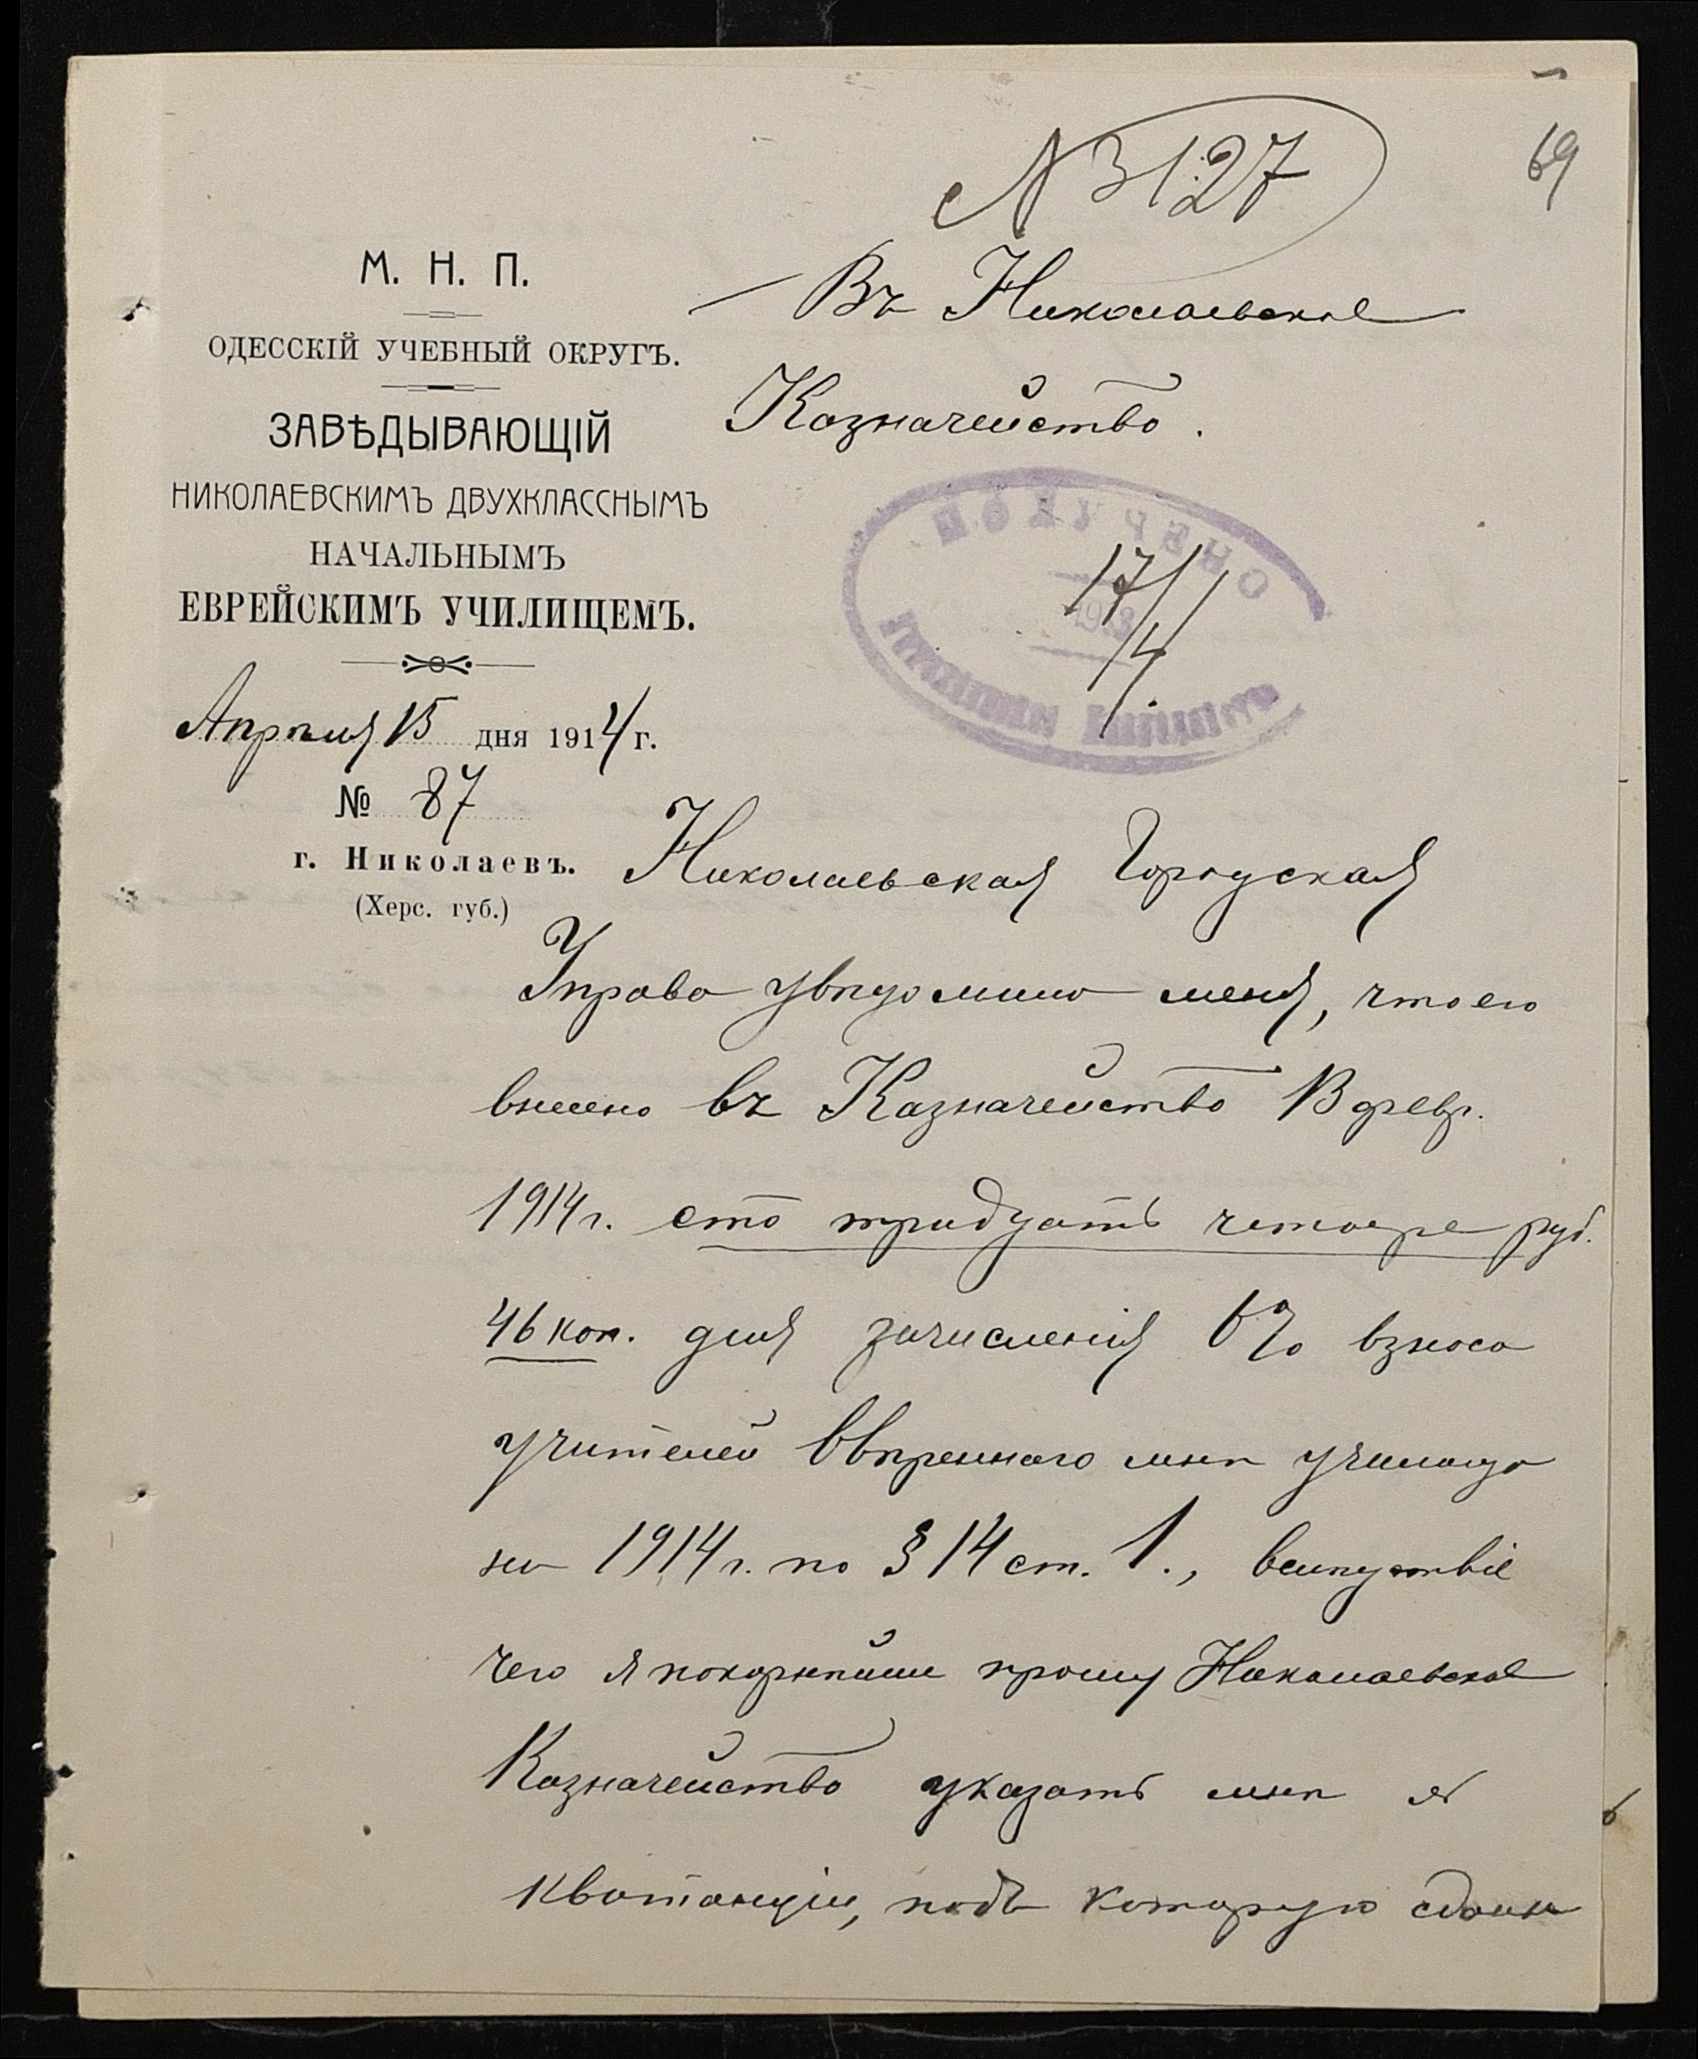 № 3127
69
М. Н. П.
ОДЕССКІЙ УЧЕБНЫЙ ОКРУГЪ.
ЗАВѢДЫВАЮЩІЙ
НИКОЛАЕВСКИМЪ ДВУХКЛАССНЫМЪ
НАЧАЛЬНЫМЪ
ЕВРЕЙСКИМЪ УЧИЛИЩЕМЪ.
Апрѣля 15 дня 1914 г.
№ 87
г. Николаевъ.
(Херс. губ.)
Въ Николаевское
Казначейство.
17/4
Николаевская Городская
Управа увѣдомила меня, что ею
внесено въ Казначейство 13 февр.
1914 г. сто тридцать четыре руб.
46 коп. для зачисленія 6% взноса
учителей ввѣреннаго мнѣ училища
на 1914 г. по § 14 ст. 1., вслѣдствіе
чего я покорнѣйше прошу Николаевское
Казначейство указать мнѣ №
квитанціи, подъ которую